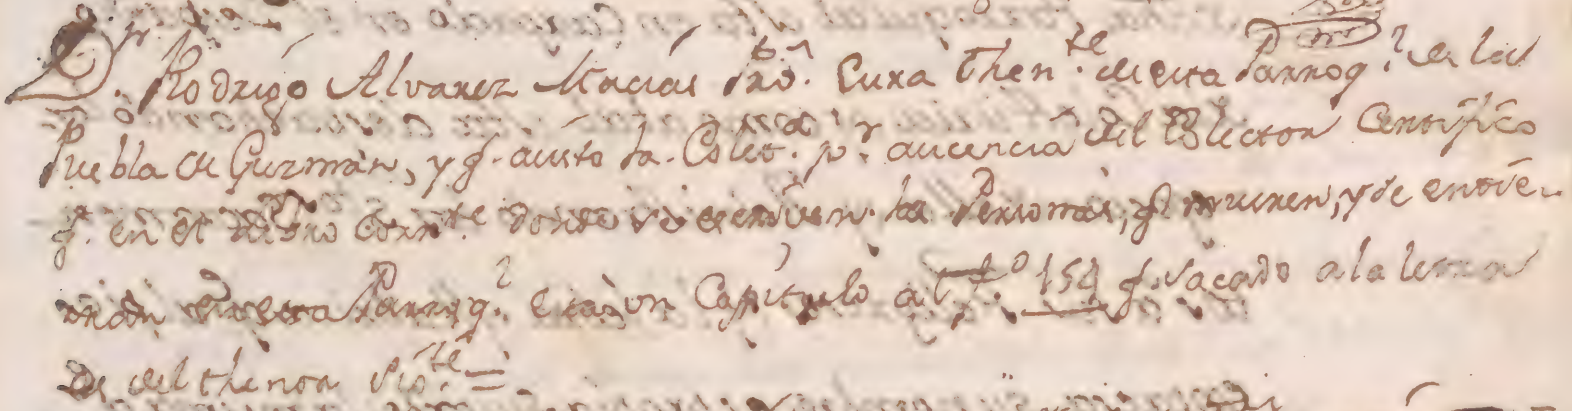 Dn. Rodrigo Alvarez Macias Pro. Cura Thente. de esta Parroqa. de la
Puebla de Guzmàn, y q. asisto la Colet.a pr. aucencia del Colector Certifico
q. en el Libro Corrte. donde se escriven las Personas, q. mueren, y se entie-
rran en esta Parroqa. està un Capitulo al fo. 154 q. sacado a la letra
es del thenor sigte. =